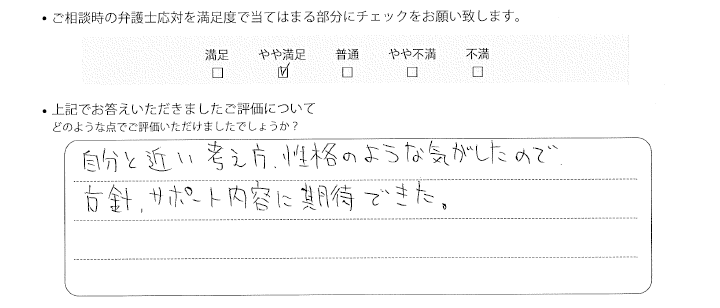 • ご相談時の弁護士応対を満足度で当てはまる部分にチェックをお願い致します。
満足 やや満足 普通 やや不満 不満
□ ☑ □ □ □
• 上記でお答えいただきましたご評価について
どのような点でご評価いただけましたでしょうか？
自分と近い考え方、性格のような気がしたので、
方針、サポート内容に期待できた。